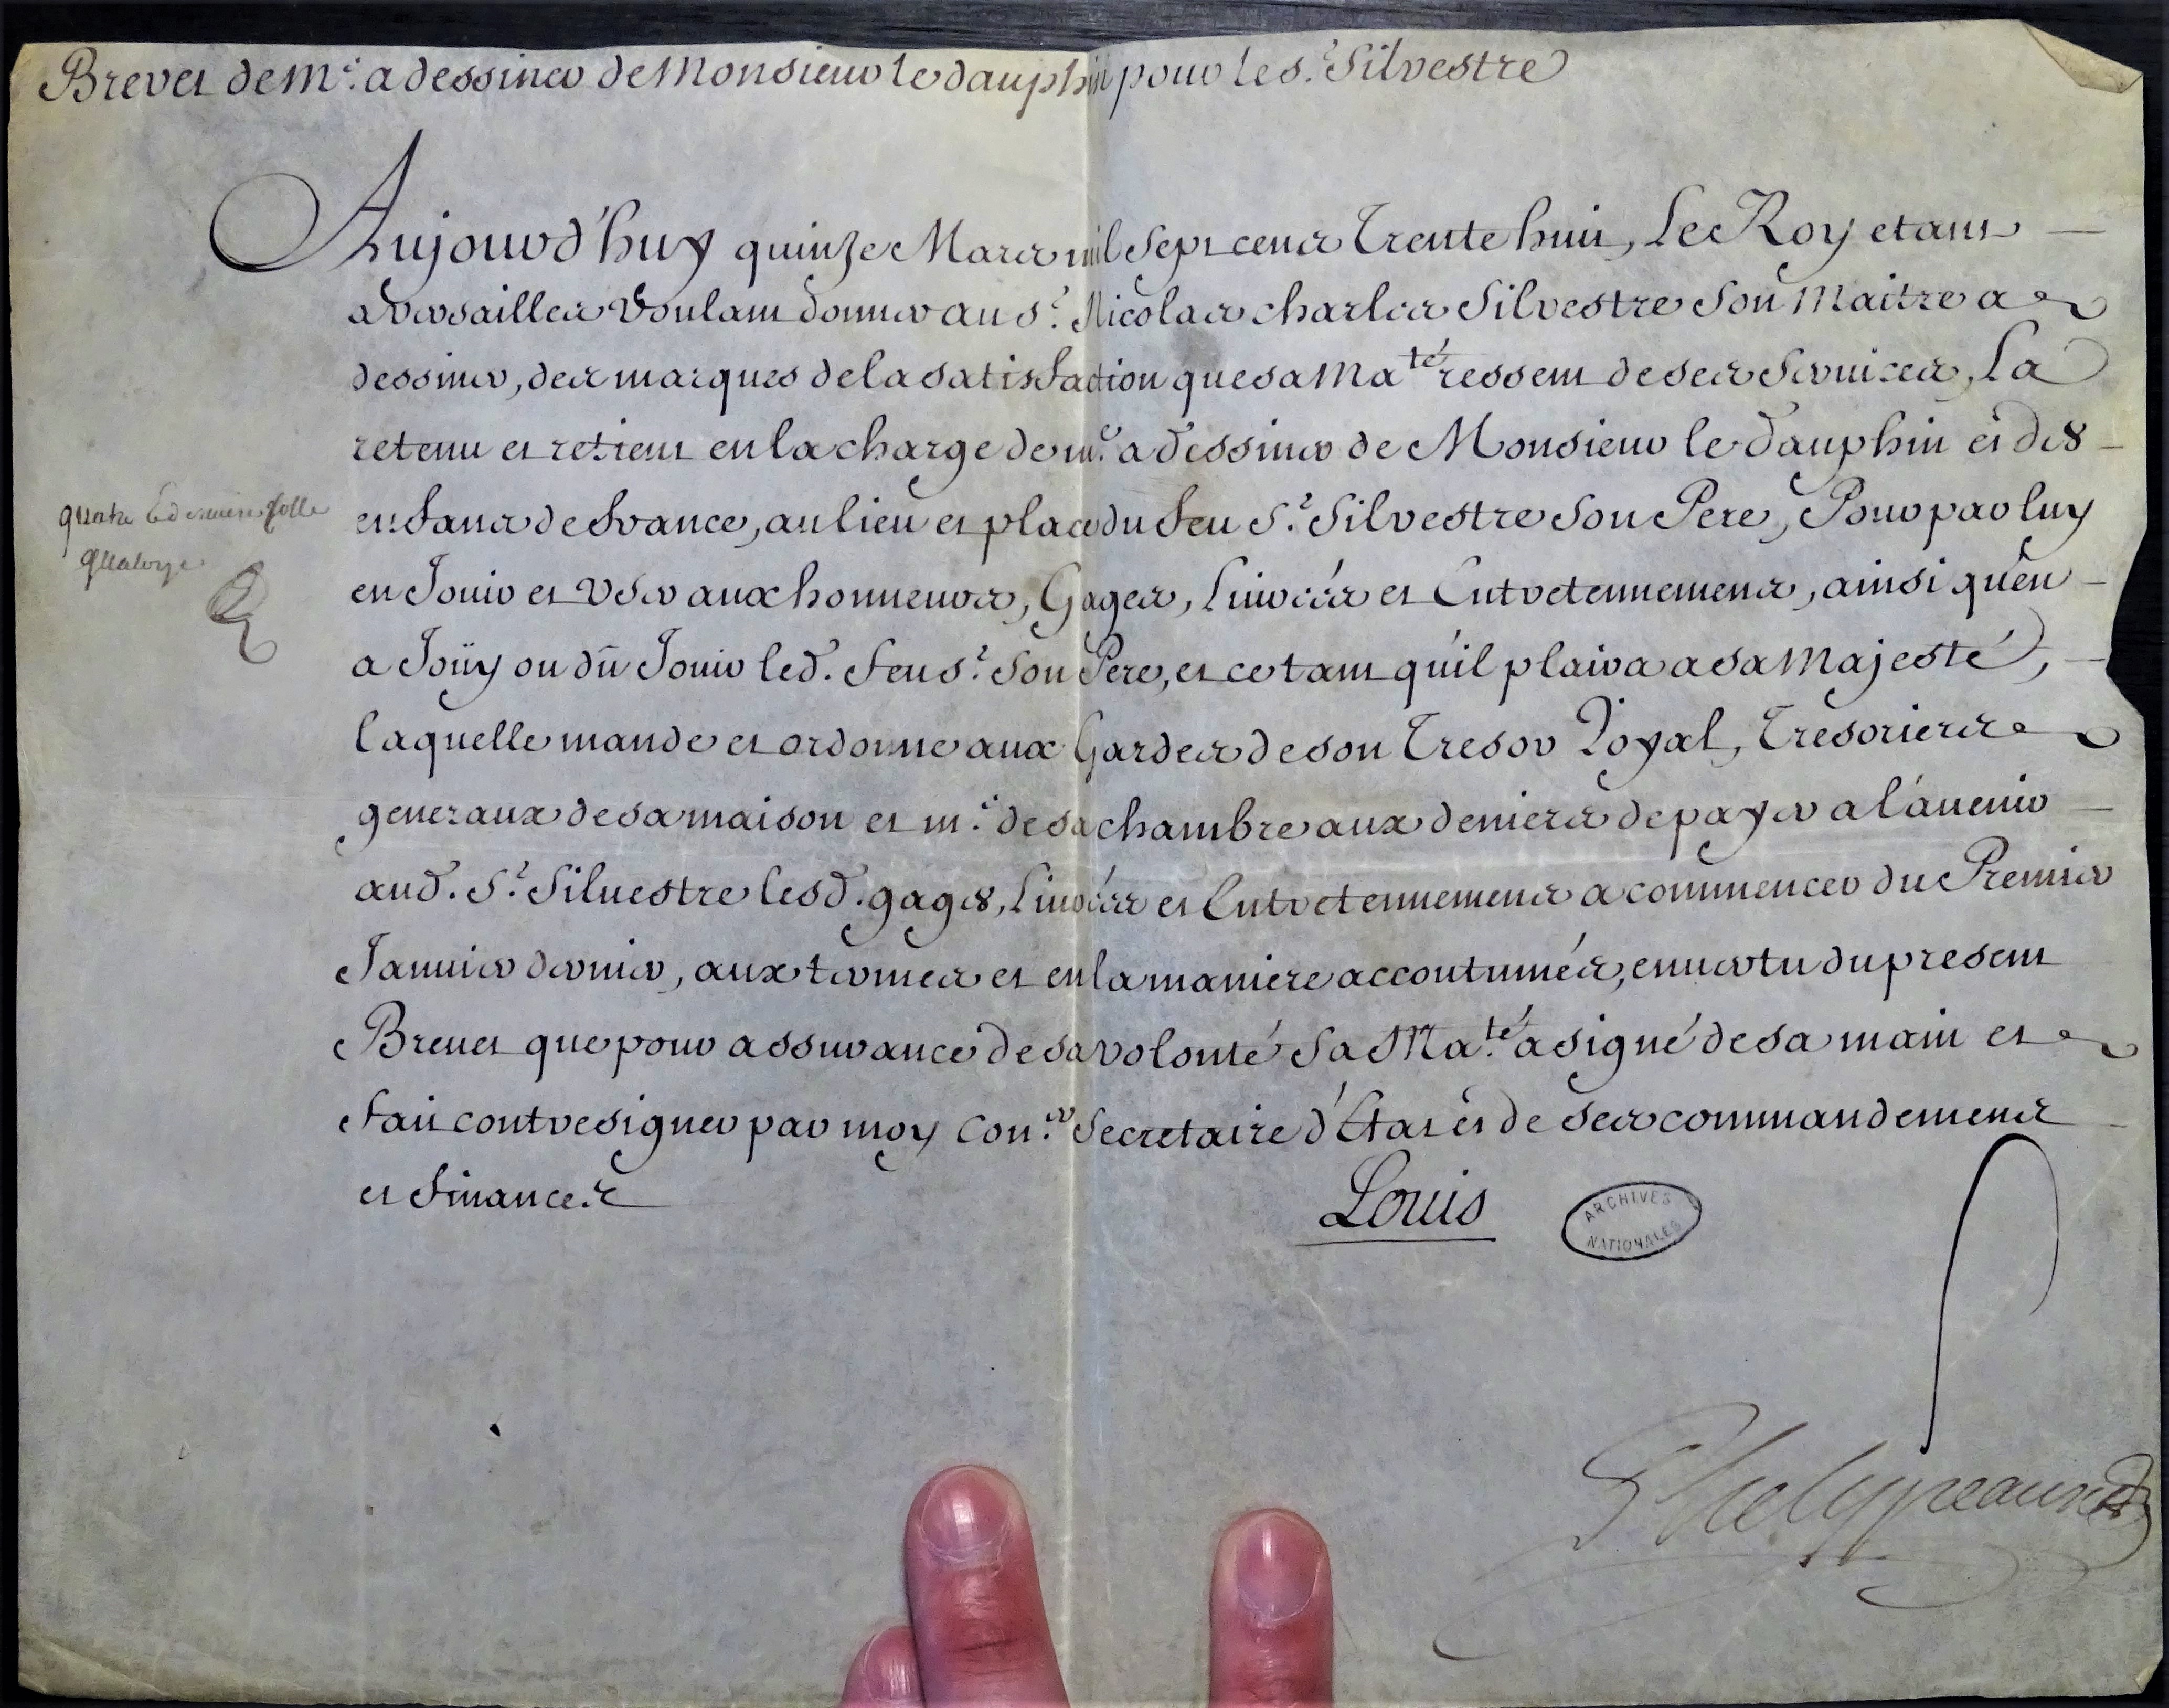 Brevet de M.e a dessiner de Monsieur le dauphin pour le s.r Silvestre
Aujourd'huy quinze Mars mil Sept cens Trente huit, Le Roy etant
a Versailles Voulant donner au s.r Nicolas charles Silvestre Son Maitre a
dessiner, des marques de la satisfaction que sa Ma.té ressent de ses Services, La
retenu et retient en la charge de m.e a dessiner de Monsieur le dauphin et des
enfans de france, au lieu et place du feu S.r Silvestre Son Pere, Pour par luy
en Jouir et User aux honneurs, Gages, Livrées et Entretennemens, ainsi qu'en
a Joüy ou dû Jouir led. feu s.r Son Pere, et ce tant qu'il plaira a sa Majesté,
laquelle mande et ordonne aux Gardes de son Tresor Royal, Tresoriers
generaux de sa maison et m.e de sa chambre aux deniers de payer a l'auenir
aud. S.r Siluestre lesd. gages, Livrées et Entretennemens a commencer du Premier
Januier dernier, aux termes et en la maniere accoutumés, en uertu du present
Breuet que pour assurance de sa volonté Sa Ma.té a signé de sa main et
fait contresigner par moy Con.er Secretaire d'Etat et de ses commandemens
et finances
quatre
quatorze
Louis
ARCHIVES NATIONALES
Phelypeaux